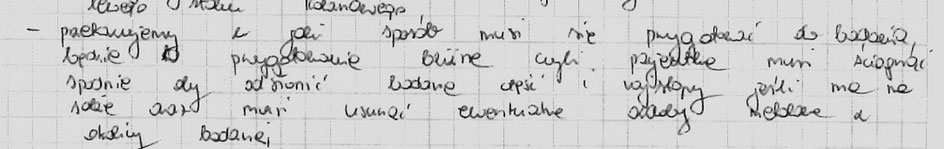 lewego stawu kolanowego
- przekazujemy w jaki sposób musi się przygotować do badania,
będzie to przygotowanie bierne czyli pacjentka musi ściągnąć
spodnie aby odsłonić badaną część i rajstopy jeśli ma na
sobie oraz musi usunąć ewentualne ozdoby metalowe z
okolicy badanej